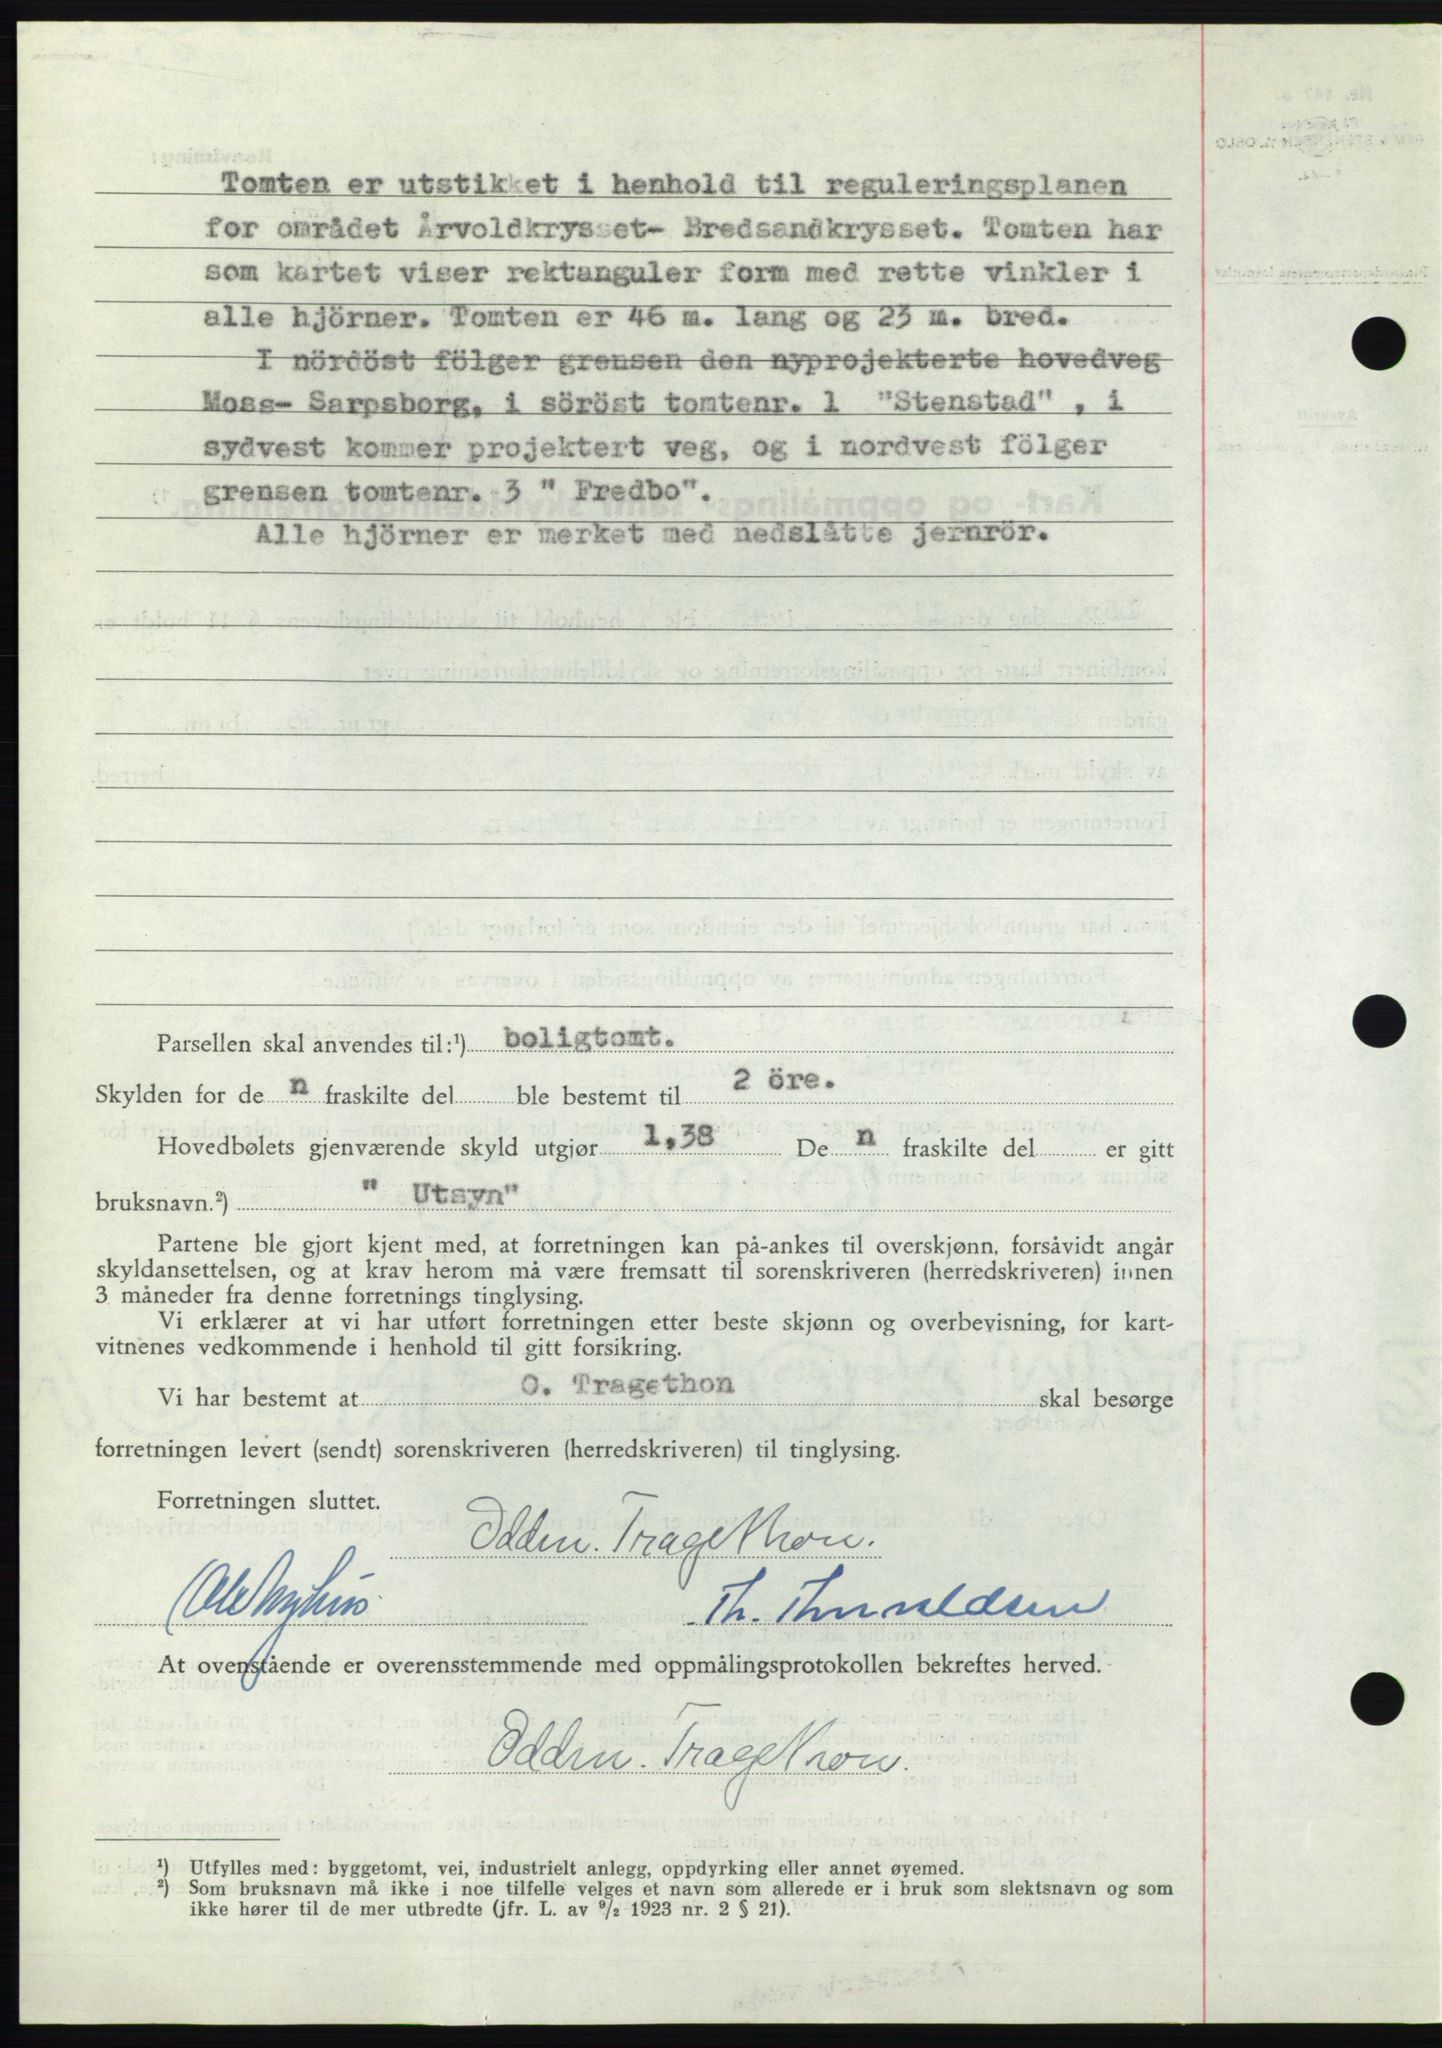 Tomten er utstikket i henhold til reguleringsplanen
for området Årvoldkrysset- Bredsandkrysset. Tomten har
som kartet viser rektanguler form med rette vinkler i
alle hjörner. Tomten er 46 m. lang og 23 m. bred.
I nördöst fölger grensen den nyprojekterte hovedveg
Moss- Sarpsborg, i söröst tomtenr. 1 "Stenstad" , i
sydvest kommer projektert veg, og i nordvest fölger
grensen tomtenr. 3 " Fredbo".
Alle hjörner er merket med nedslåtte jernrör.
Parsellen skal anvendes til:¹) boligtomt.
Skylden for de n fraskilte del ble bestemt til 2 öre.
Hovedbølets gjenværende skyld utgjør 1,38 De n fraskilte del er gitt
bruksnavn.²) " Utsyn"
Partene ble gjort kjent med, at forretningen kan på-ankes til overskjønn, forsåvidt angår
skyldansettelsen, og at krav herom må være fremsatt til sorenskriveren (herredskriveren) innen
3 måneder fra denne forretnings tinglysing.
Vi erklærer at vi har utført forretningen etter beste skjønn og overbevisning, for kart-
vitnenes vedkommende i henhold til gitt forsikring.
Vi har bestemt at O. Tragethon skal besørge
forretningen levert (sendt) sorenskriveren (herredskriveren) til tinglysing.
Forretningen sluttet.
Oddm. Tragethon.
Th. Thorvaldsen
At ovenstående er overensstemmende med oppmålingsprotokollen bekreftes herved.
Oddm. Tragethon.
¹) Utfylles med: byggetomt, vei, industrielt anlegg, oppdyrking eller annet øyemed.
²) Som bruksnavn må ikke i noe tilfelle velges et navn som allerede er i bruk som slektsnavn og som
ikke hører til de mer utbredte (jfr. L. av ⁹/₂ 1923 nr. 2 § 21).